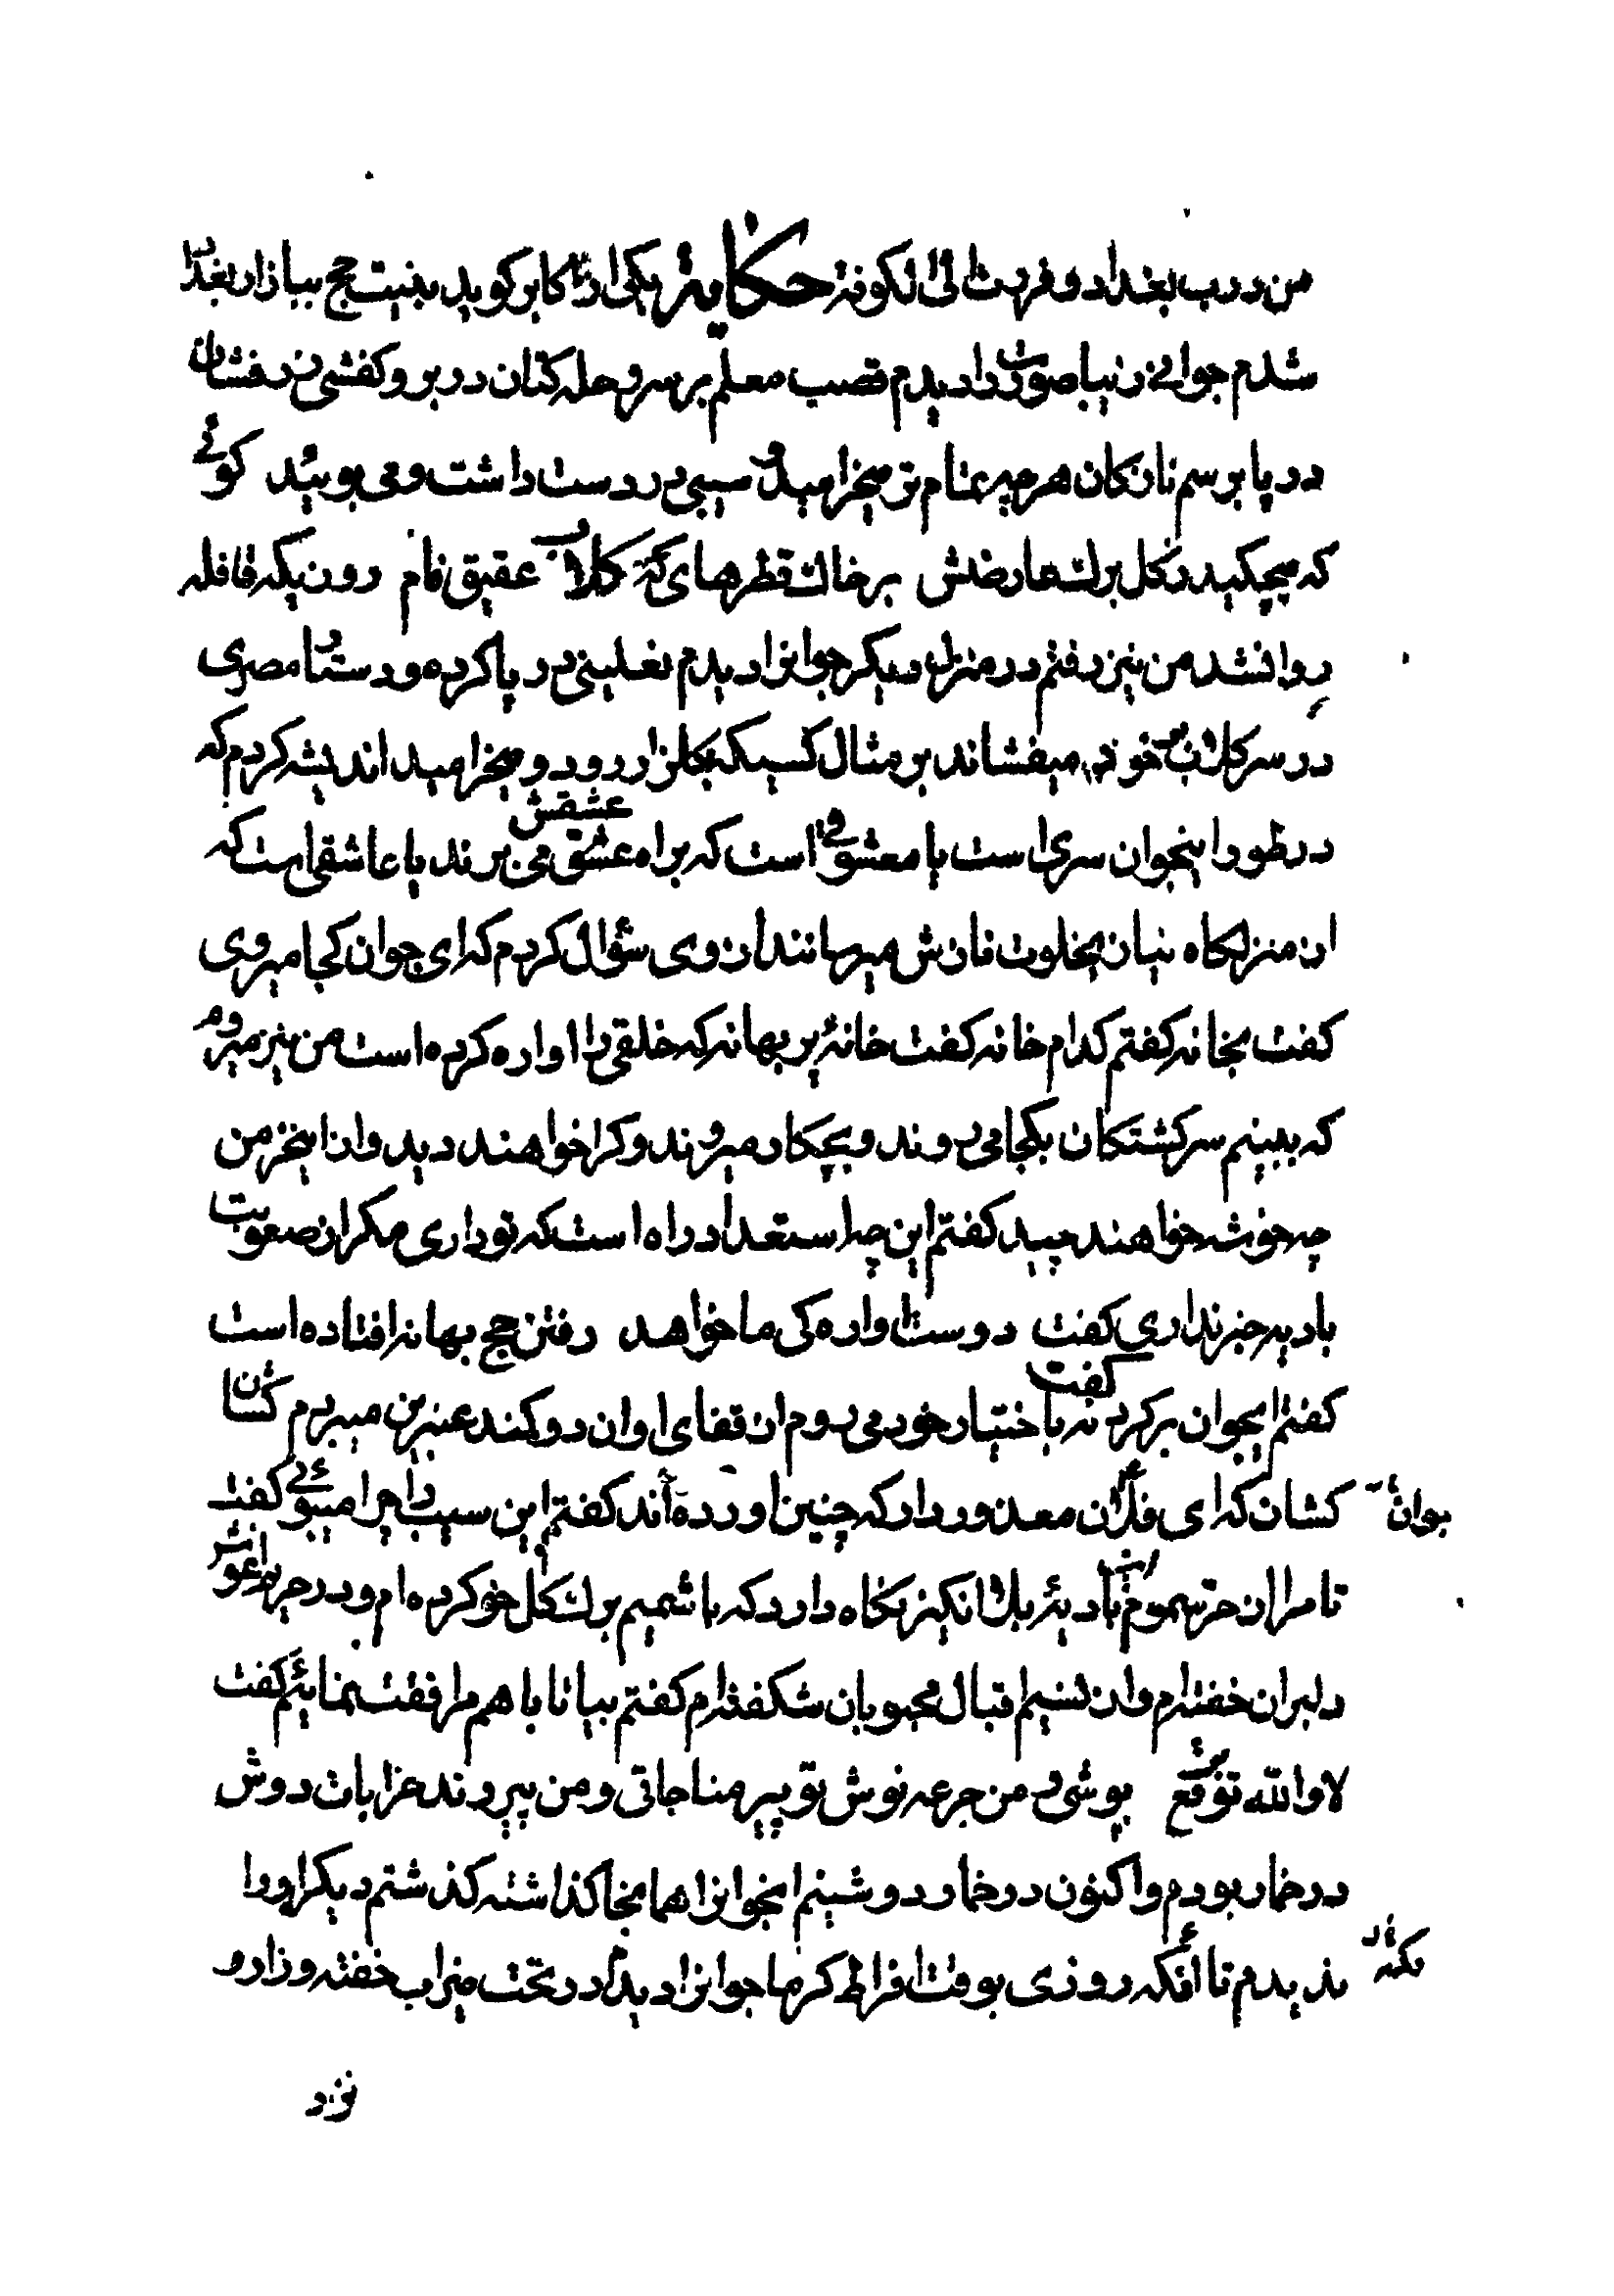 من درب بغداد و فرت الی الکوفة حکایة یکی از اکابر کوید بنیت حج ببازار بغداد
شدم جوانی زیبا صورت را دیدم قصب معلم بر سر و حله کتان در بر و کفشی زرفشان
در پا برسم نازکان هر چه تمام تر میخرامید و سیبی در دست داشت و می بوئید کوئی
که میچکید ز کل برک عارضش بر خاک قطرهای کلاب عقیق فام روزیکه قافله
روانشد من نیز رفتم در منزل دیکر جوانرا دیدم نعلینی در پا کرده و دستار مصری
در سر کلاب بر خود میفشاند بر مثال کسیکه بکلزار رود و میخرامید اندیشه کردم که
در طور اینجوان سری است یا معشوقی است که براه عشق می برند یا عاشقی است که
از منزلکاه نیاز بخلوت نازش میرسانند از وی سؤال کردم که ای جوان کجا میروی
کفت بخانه کفتم کدام خانه کفت خانهٔ پر بهانه که خلقی را اواره کرده است من نیز میروم
که ببینم سرکشتکان بکجا می روند و بچکار میروند و کرا خواهند دید و از اینخرمن
چه خوشه خواهند چید کفتم این چه استعداد راه است که تو داری مکر از صعوبت
بادیه خبر نداری کفت دوست اواره کی ما خواهد رفتن حج بهانه افتاده است
کفتم ایجوان برکرد کفت نه باختیار خود می روم از قفای او ان دو کمند عنبرین میبردم کشان
کشان که ای فلان معذور دار که چنین اورده اند کفتم این سیب را چرا میبوئی کفت
تا مرا از حر سموم بادیهٔ بلا انکیز نکاه دارد که با شمیم برک کل خو کرده ام و در حریم اغوش
دلبران خفته ام و از نسیم اقبال محبوبان شکفته ام کفتم بیا تا با هم مرافقت نمائیم کفت
لا والله تو مرقع پوشی و من جرعه نوش تو پیر مناجاتی و من پیر و رند خرابات دوش
در خمار بودم و اکنون در خمار دوشینم اینجوانرا همانجا کذاشته کذشتم دیکر او را
ندیدم تا انکه روزی بوقت افراط کرما جوانرا دیدم در تحت میزاب خفته و زار و
نزد